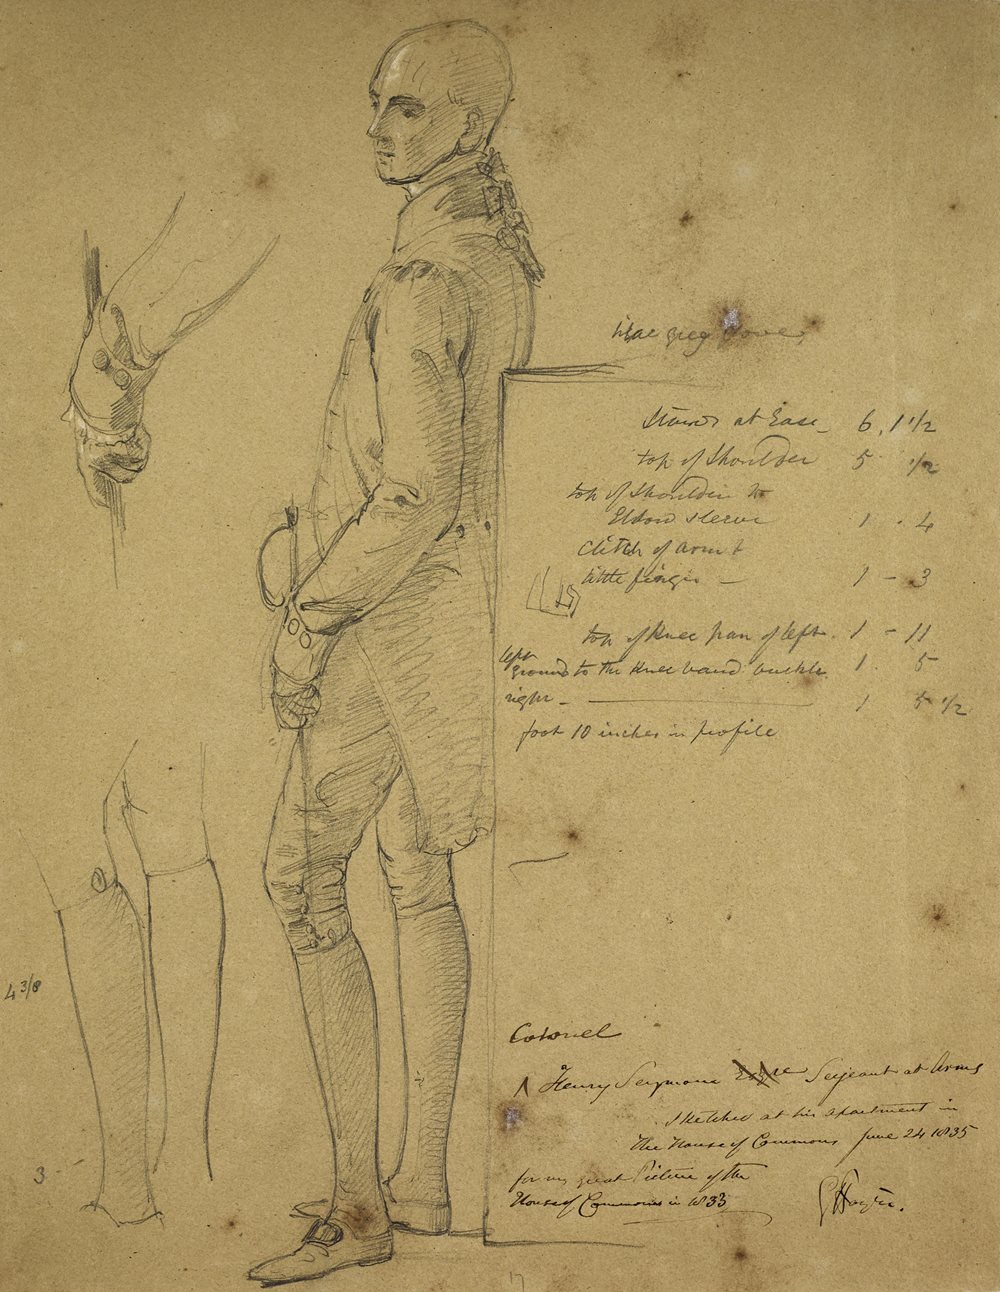 grey
Stands at Ease - 6, 1 1/2
top of Shoulder 5 1/2
top of Shoulder to
Elbow sleeve 1 - 4
of arm to
little finger - 1 - 3
top of Knee pan of left. 1 - 11
left
ground to the Knee band buckle 1. 5
right - 1 5 1/2
foot 10 inches in profile
4 3/8
3 -
Colonel
^ Henry Seymour Esqre Serjeant at Arms
Sketched at his apartment in
the House of Commons June 24 1835
for my great Picture of the
House of Commons in 1833
G Hayter.
17